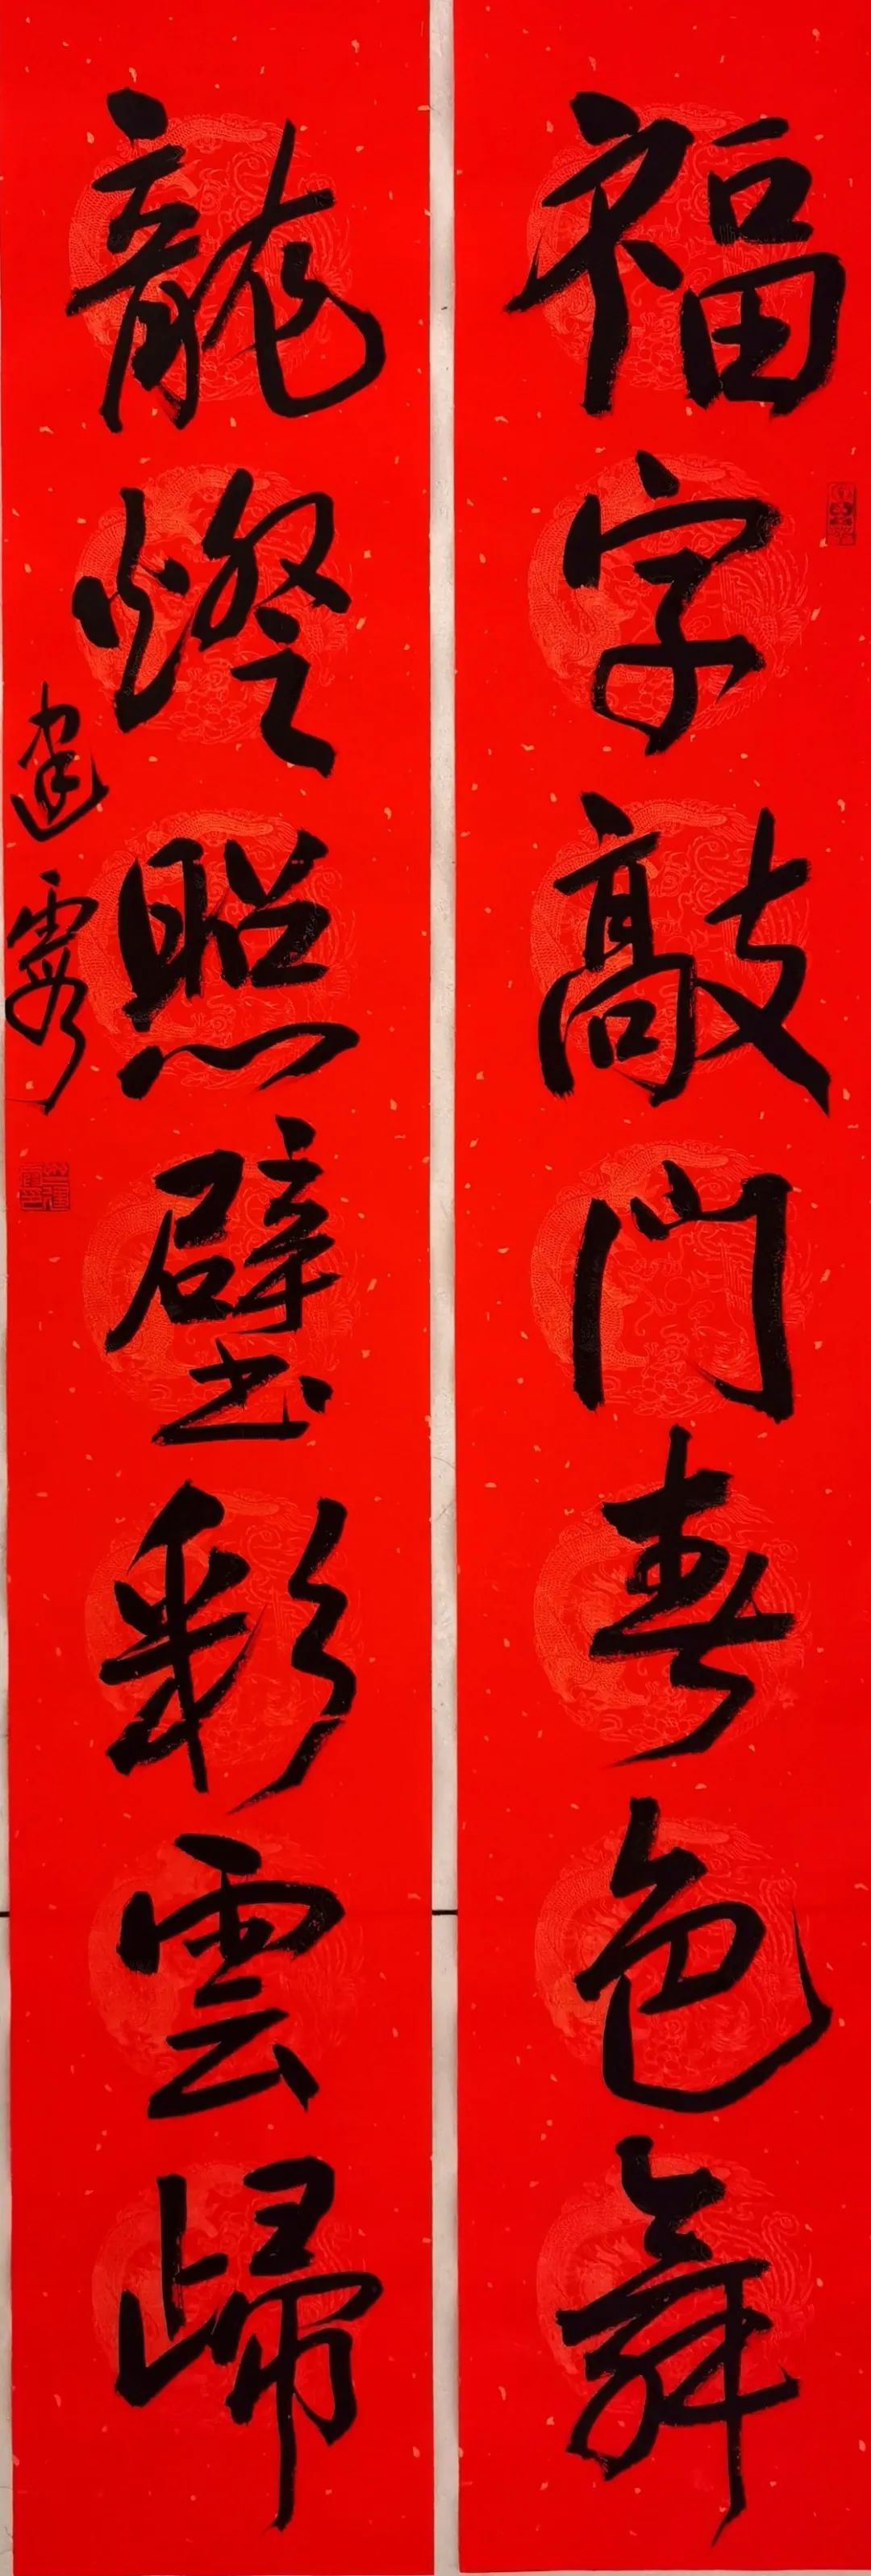 福字敲門春色舞
龍燈照壁彩雲歸
建霞